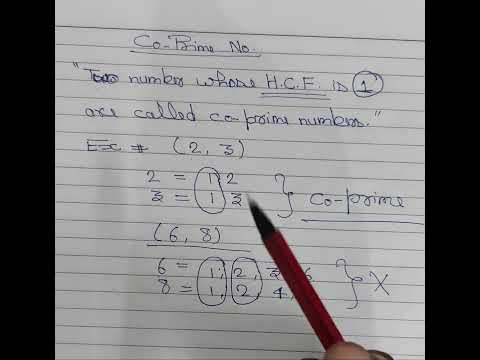 Co-Prime No.
"Two number whose H.C.F. is 1
are called co prime numbers."
Ex # (2, 3)
2 = 1, 2
3 = 1, 3 } co-prime
(6, 8)
6 = 1, 2, 3, 6
8 = 1, 2, 4, } X